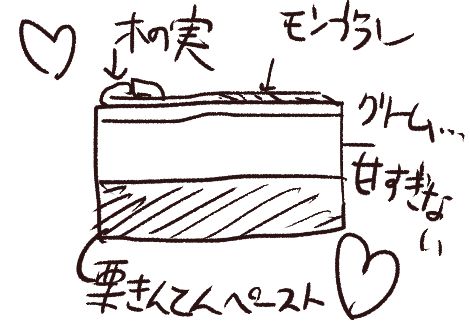 木の実
モンブラン
クリーム…
甘すぎな
い
栗きんてんペースト